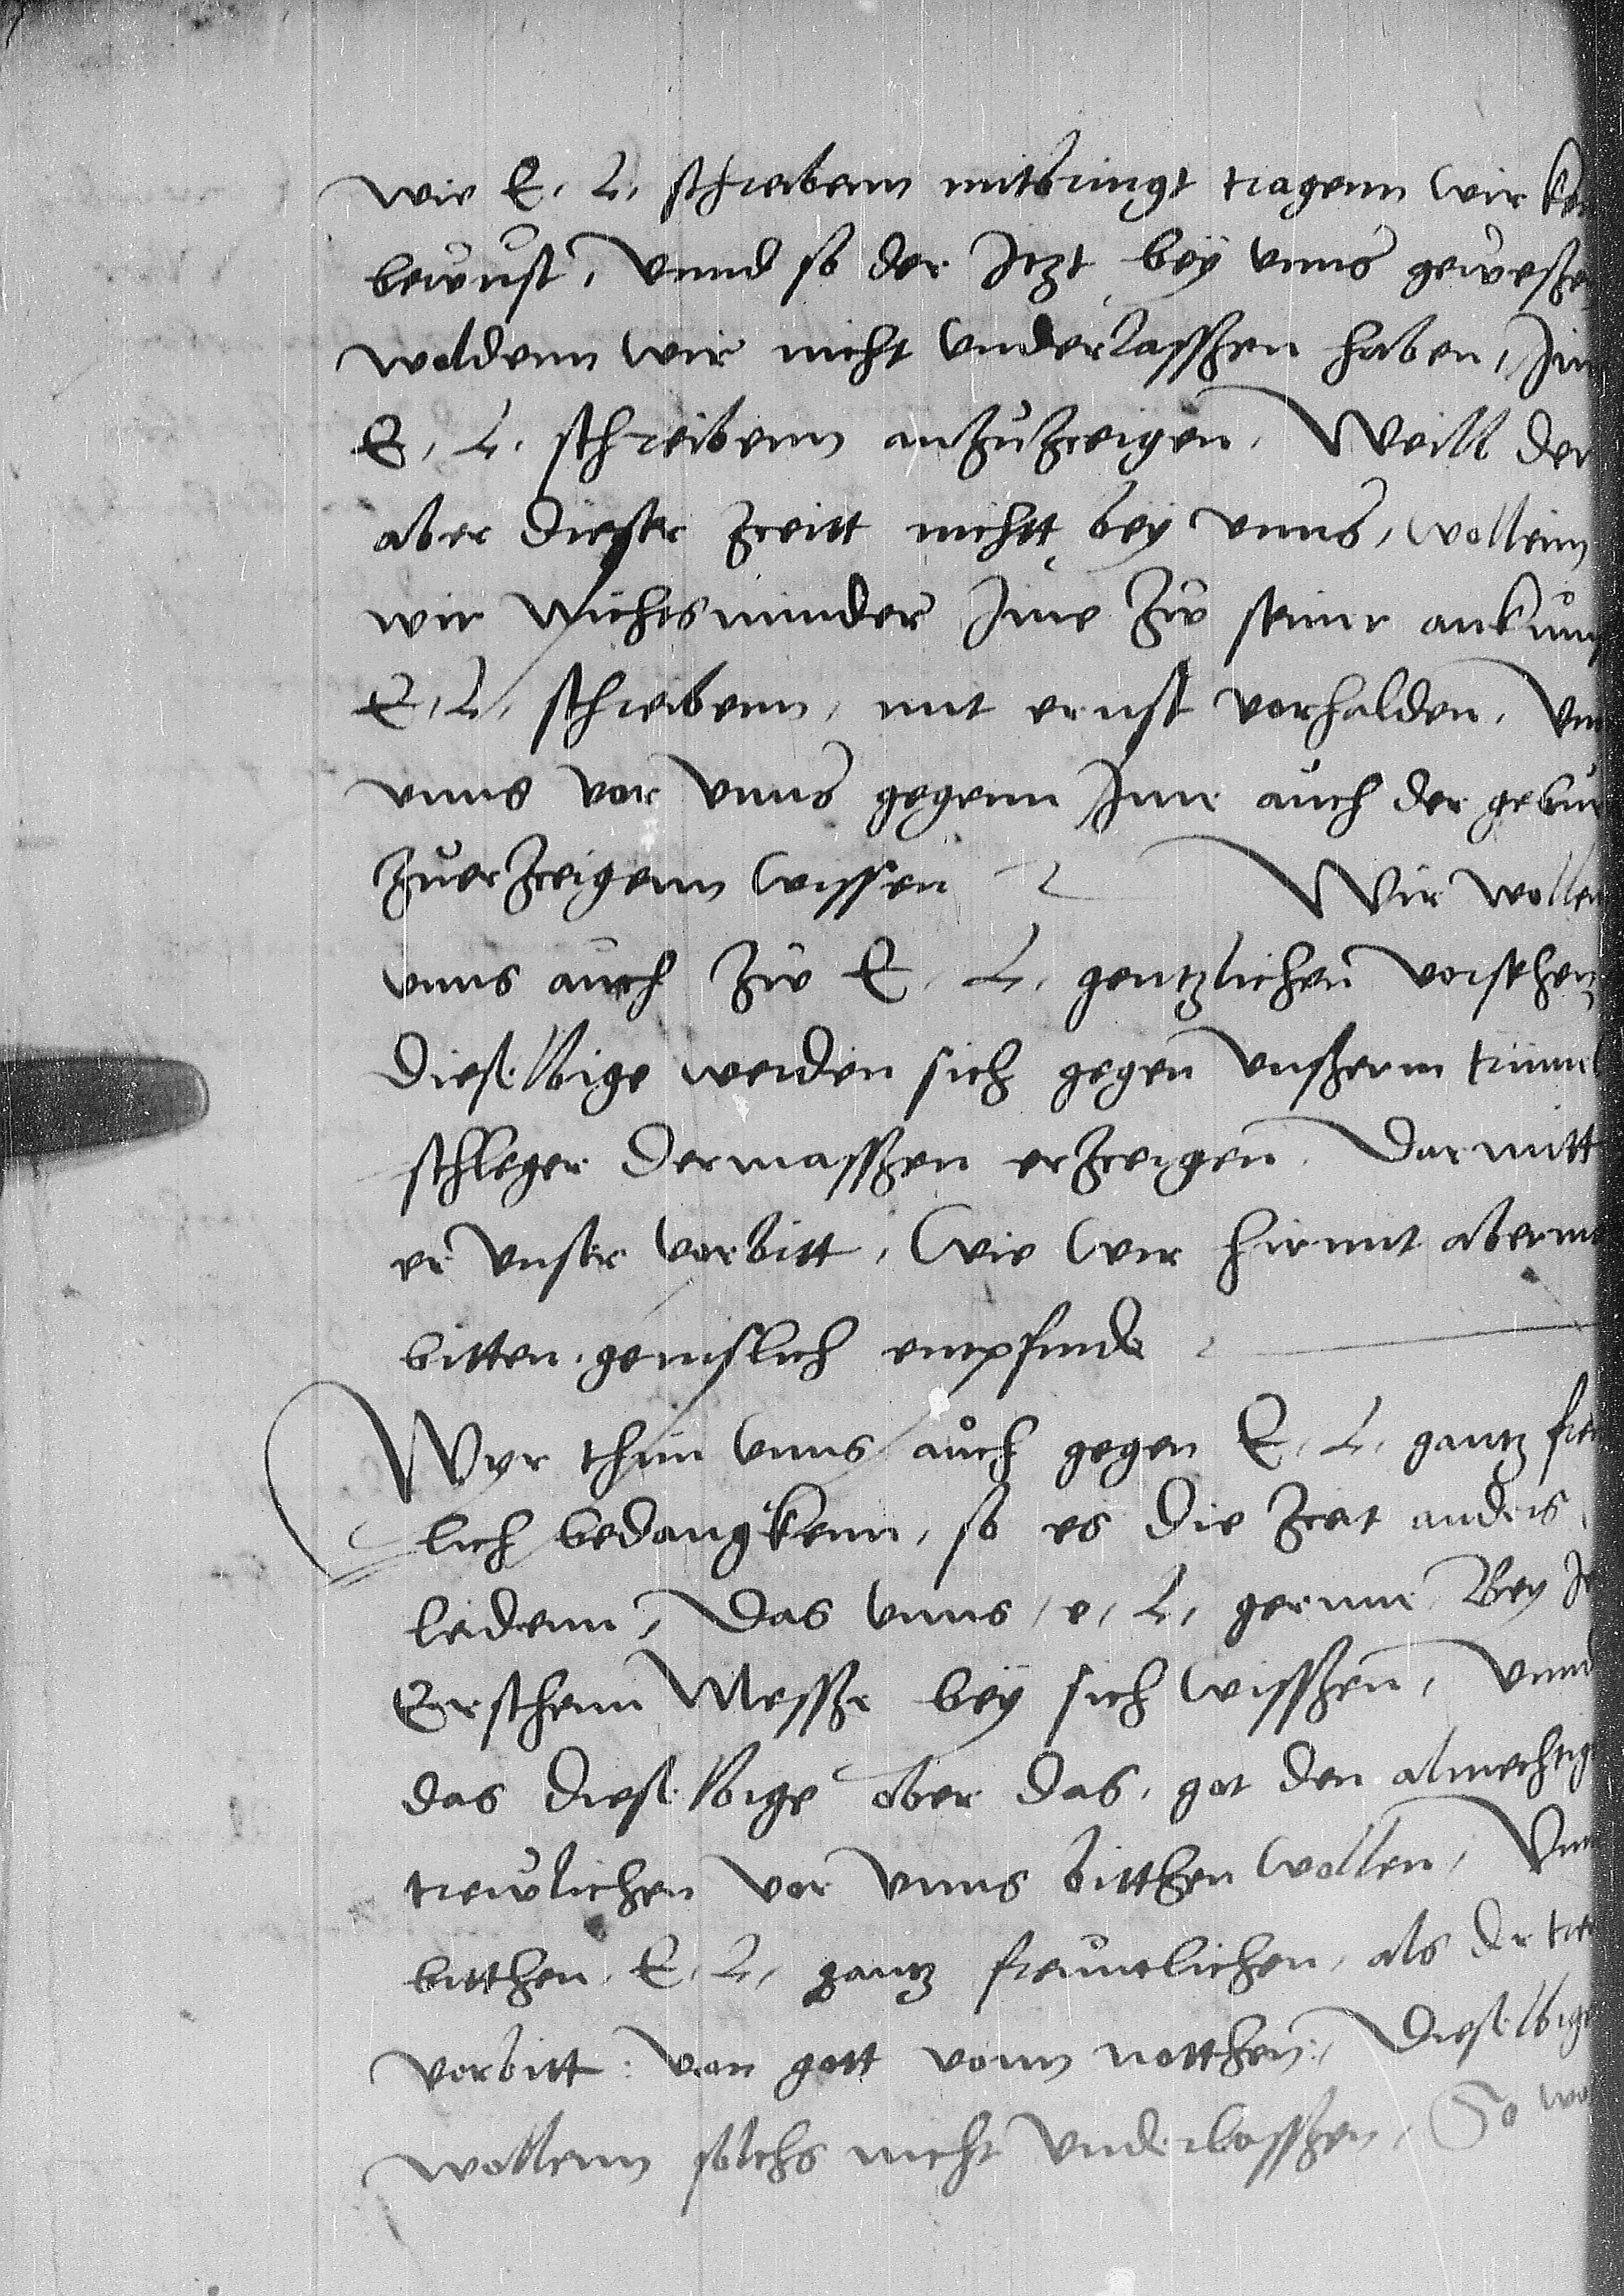 wie E. L. schreibenn mitbringt tragenn wir kein
bewust, vnnd so der Itzt bey vnns geweßen
woldenn wir nicht vnderlasszen haben, Im
E. L. schreibenn anzuzceigen, Weill der
aber dieser zceitt nichtt bey vnns, wollenn
wir Nichtsminder Ime zw seiner ankunf
E. L. schreibenn, mit ernst vorhalden, vnd
vnns vor vnns gegenn Ime auch der gebur
zuerzceigenn wissen Wir wollen
vnns auch zw E. L. gentzlichen vorsehen,
Dieselbige werden sich gegen vnßerm trumel
schleger dermasszen erzceigen, Darmitt
er vnser vorbitt, wie wir hirmit aberma
bitten, genislich empfinde
Wyr thun vnns auch gegen E. L. gantz freu
lich bedangkenn, so es die zceit anders
leidenn, Das vnns, e, L, gernne Bey
Erschenn Messze bey sich wisszen, vnnd
das dieselbige aber das, got den almechtig
trewlichen vor vnns bitthen wollen, Vnd
bitthen, E. L. gantz freuntlichen, als der
vorbitt von gott vonn notthen, Dieselbige
wollenn solchs nicht vnderlasszen, So wo